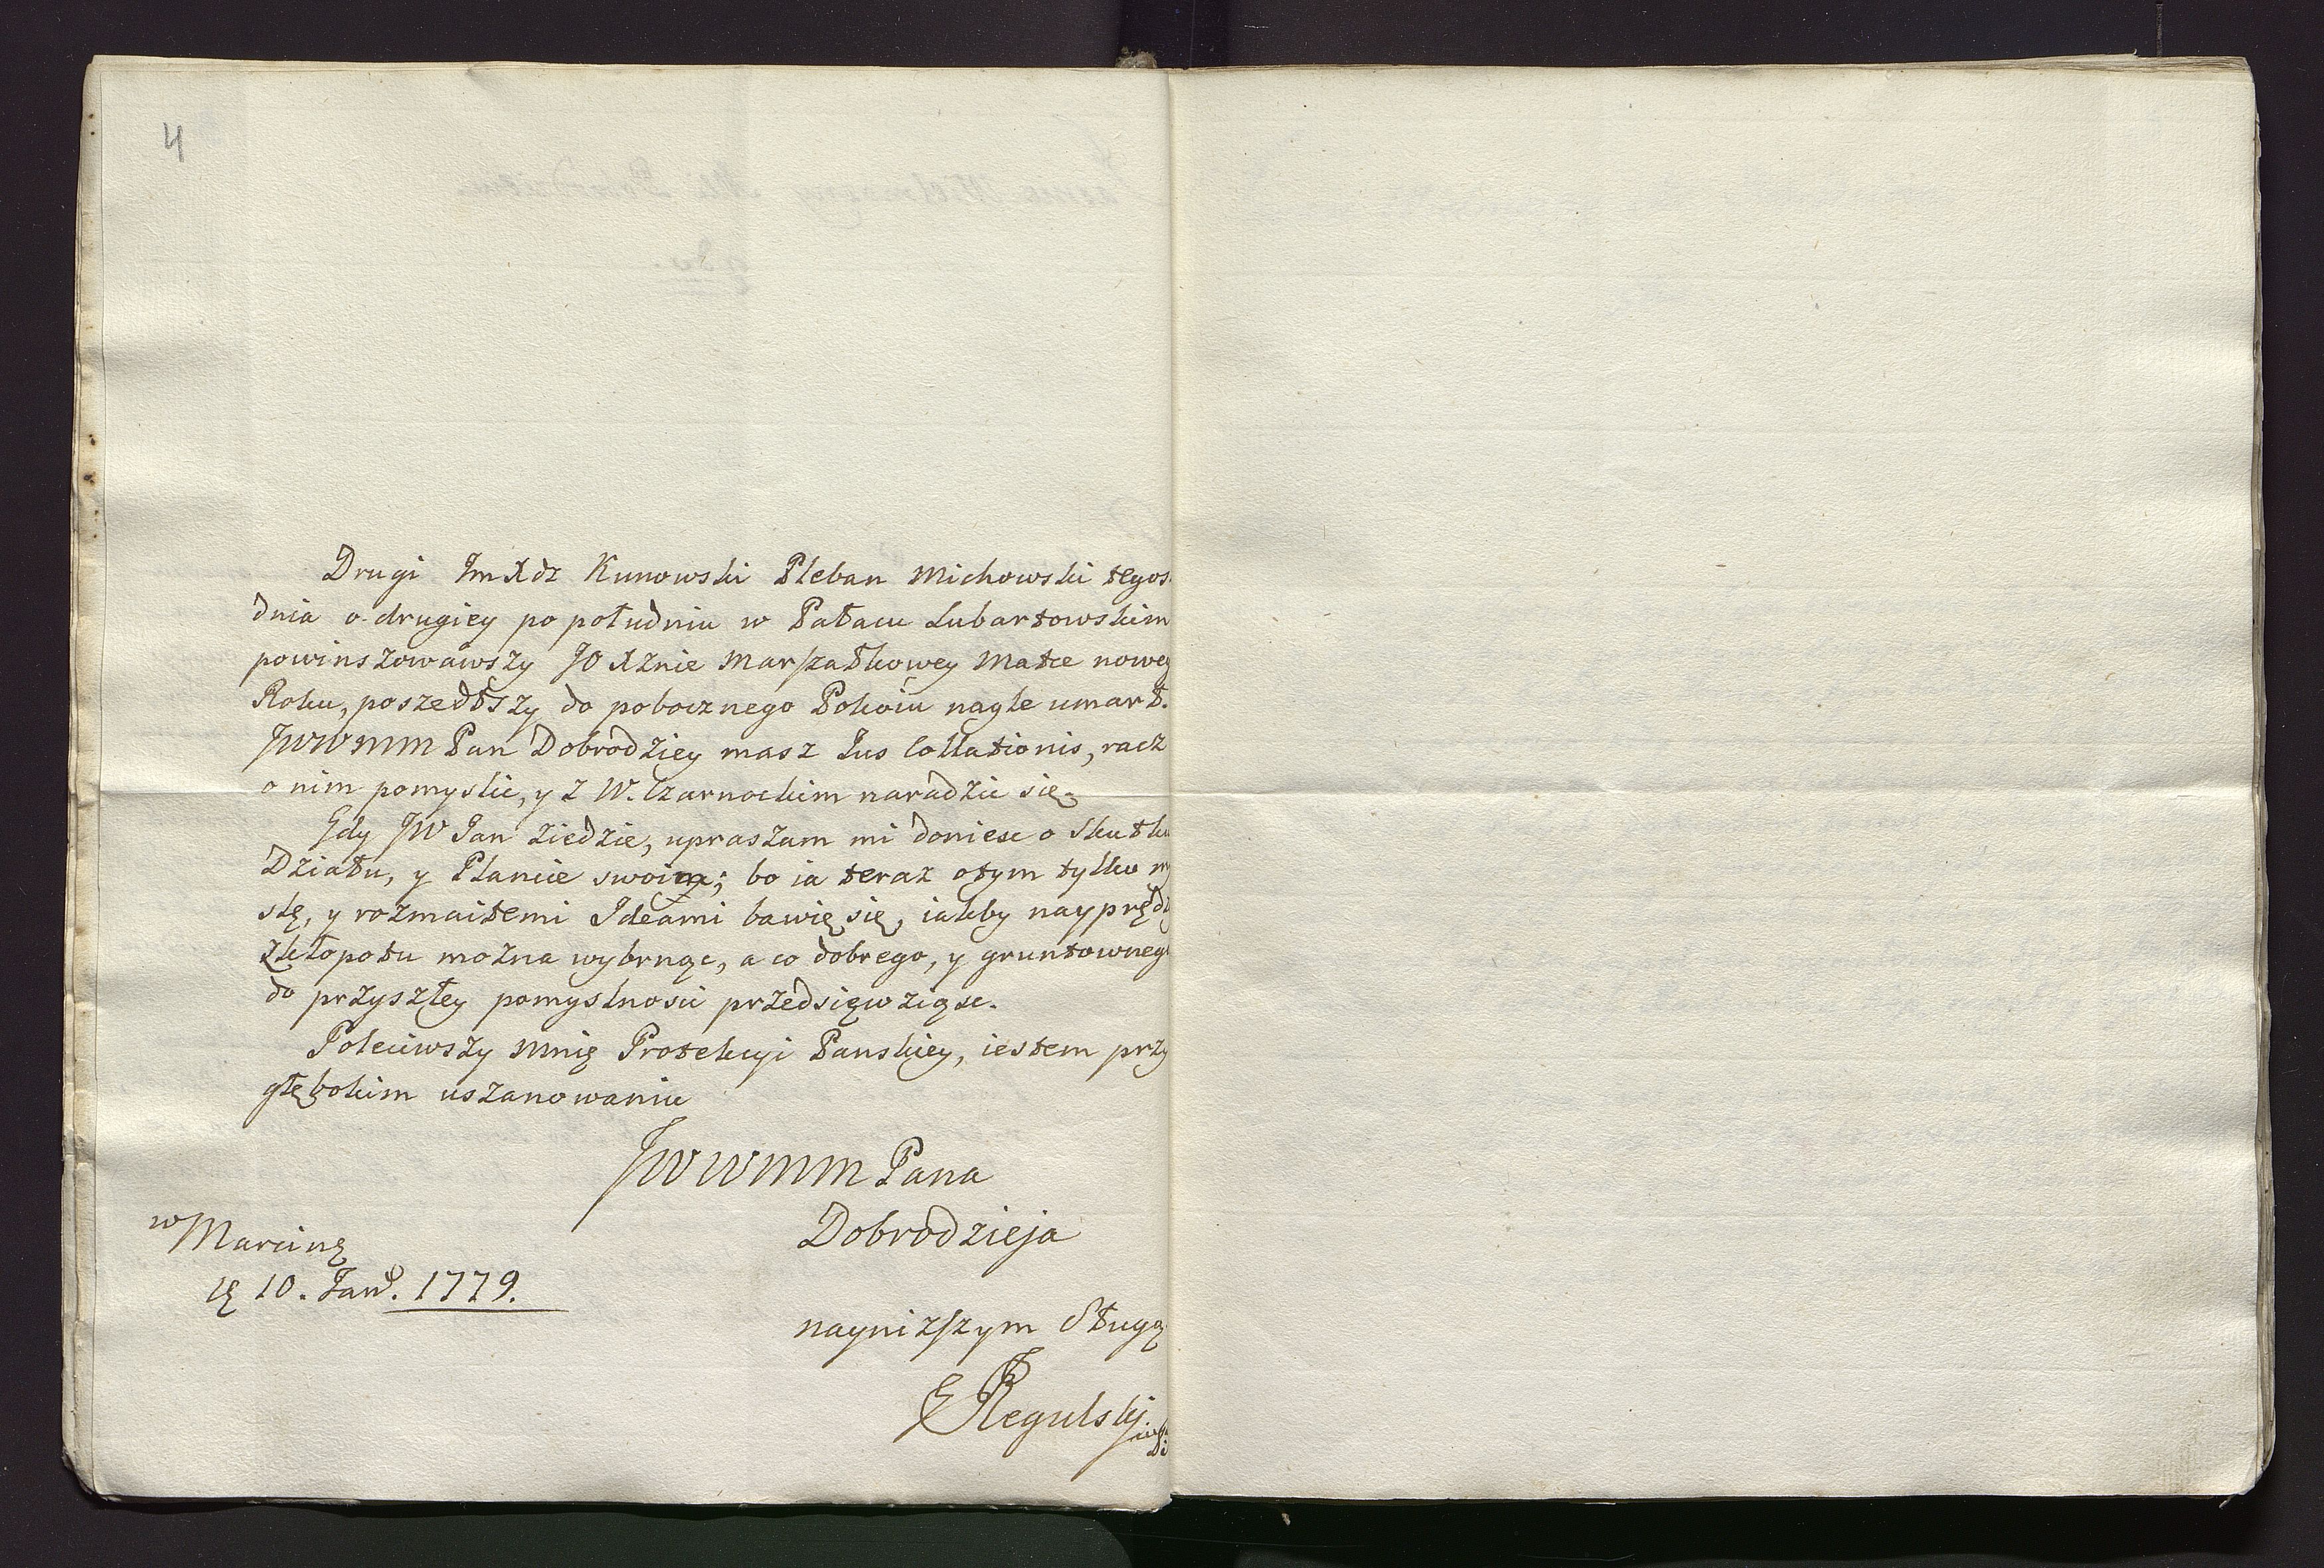 4
Drugi ImXdz Kunowski Pleban Michowski tegos
dnia o drugiey po południu w Pałacu Lubartowskim
powinszowawszy JO Xznie Marszałkowey Matce nowe
Roku, poszedłszy do pobocznego Pokoiu nagle umarł.
JWWMM Pan Dobrodziey masz Jus Collationis, racz
o nim pomyslic, y z W. Czarnockim naradzic się.
Gdy JW Pan ziedzie, upraszam mi doniesc o Skutku
Działu, y Planie swoim; bo ia teraz otym tylko my
slę, y rozmaitemi Ideami bawię się, iakby nayprędz
z kłopotu mozna wybrnąc, a co dobrego, y gruntowneg
do przyszłey pomyslnosci przedsięwziąsc.
Poleciwszy mnię Protekcyi Panskiey, iestem przy
głębokim uszanowaniu
JWWMM Pana
Dobrodzieja
w Marcinę
10. Jan. 1779.
nayniższym Sługą
Regulski